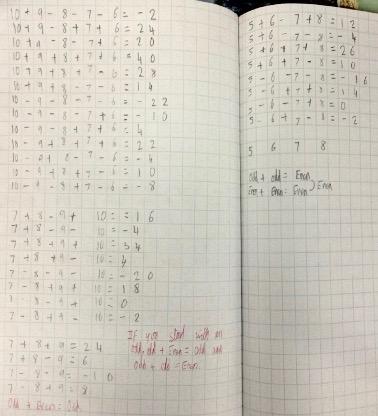 10 + 9 - 8 - 7 - 6 = - 2
10 + 9 - 8 + 7 + 6 = 24
10 + 9 - 8 - 7 + 6 =
10 + 9 + 8 + 7 + 6 = 40
10 + 9 + 8 + 7 - 6 = 28
10 + 9 + 8 - 7 - 6 = 14
10 - 9 - 8 - 7 - 6 = - 22
10 - 9 - 8 - 7 + 6 = - 10
10 - 9 - 8 + 7 + 6 =
10 - 9 + 8 + 7 + 6 = 22
10 - 9 + 8 - 7 - 6 = - 4
10 - 9 + 8 + 7 - 6 = 10
10 - 9 - 8 + 7 - 6 = - 8
7 + 8 - 9 + 10 = 16
7 + 8 - 9 - 10 = - 4
7 + 8 + 9 + 10 = 34
7 + 8 + 9 - 10 =
7 - 8 - 9 - 10 = - 20
7 - 8 + 9 + 10 = 18
7 - 8 - 9 + 10 = 0
7 - 8 + 9 - 10 = - 2
7 + 8 + 9 = 24
7 + 8 - 9 = 6
7 - 8 - 9 = - 10
7 - 8 + 9 = 8
Odd + Even = Odd.
IF you start with an
odd, odd + Even = Odd and
odd + odd = Even.
5 + 6 - 7 + 8 = 12
5 + 6 - 7 - 8 = - 4
5 + 6 + 7 + 8 = 26
5 + 6 + 7 - 8 = 10
5 - 6 - 7 - 8 = - 16
5 - 6 + 7 + 8 = 14
5 - 6 - 7 + 8 = 0
5 - 6 + 7 - 8 = - 2
5 6 7 8
Odd + odd = Even
Even + Even = Even) Even